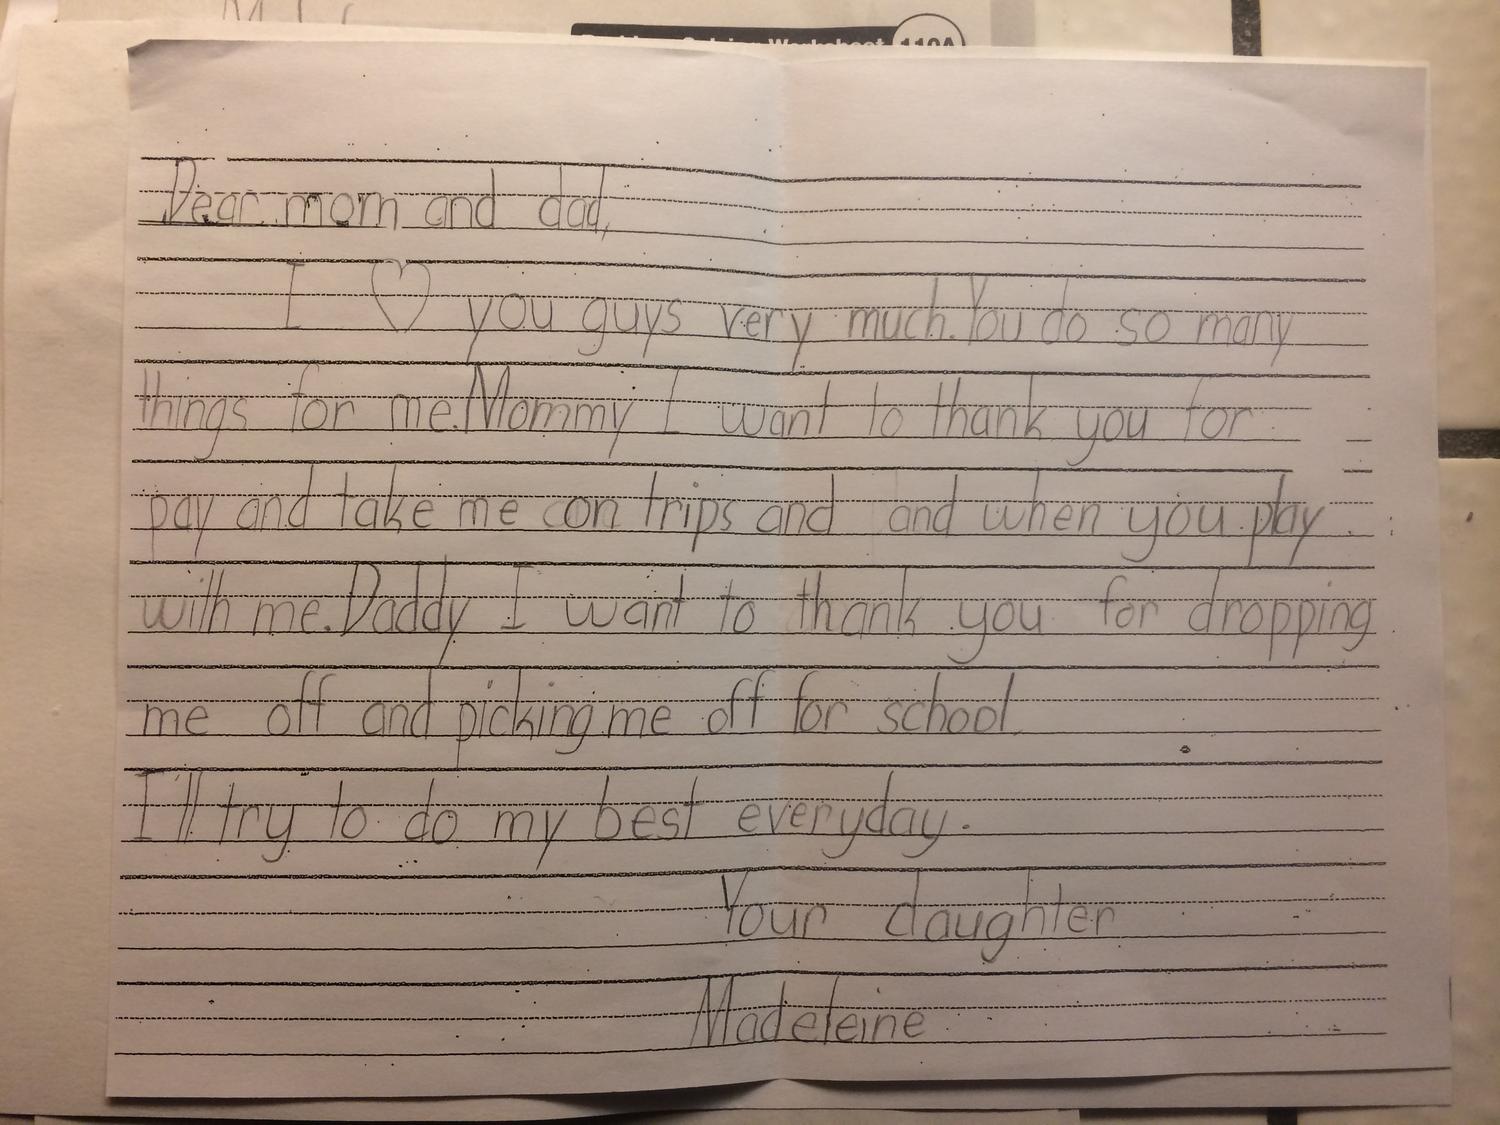 Worksheet 110A
Dear mom and dad,
I ♡ you guys very much. You do so many
things for me. Mommy I want to thank you for
pay and take me on trips and and when you play
with me. Daddy I want to thank you for dropping
me off and picking me off for school.
I'll try to do my best everyday.
Your daughter
Madeleine